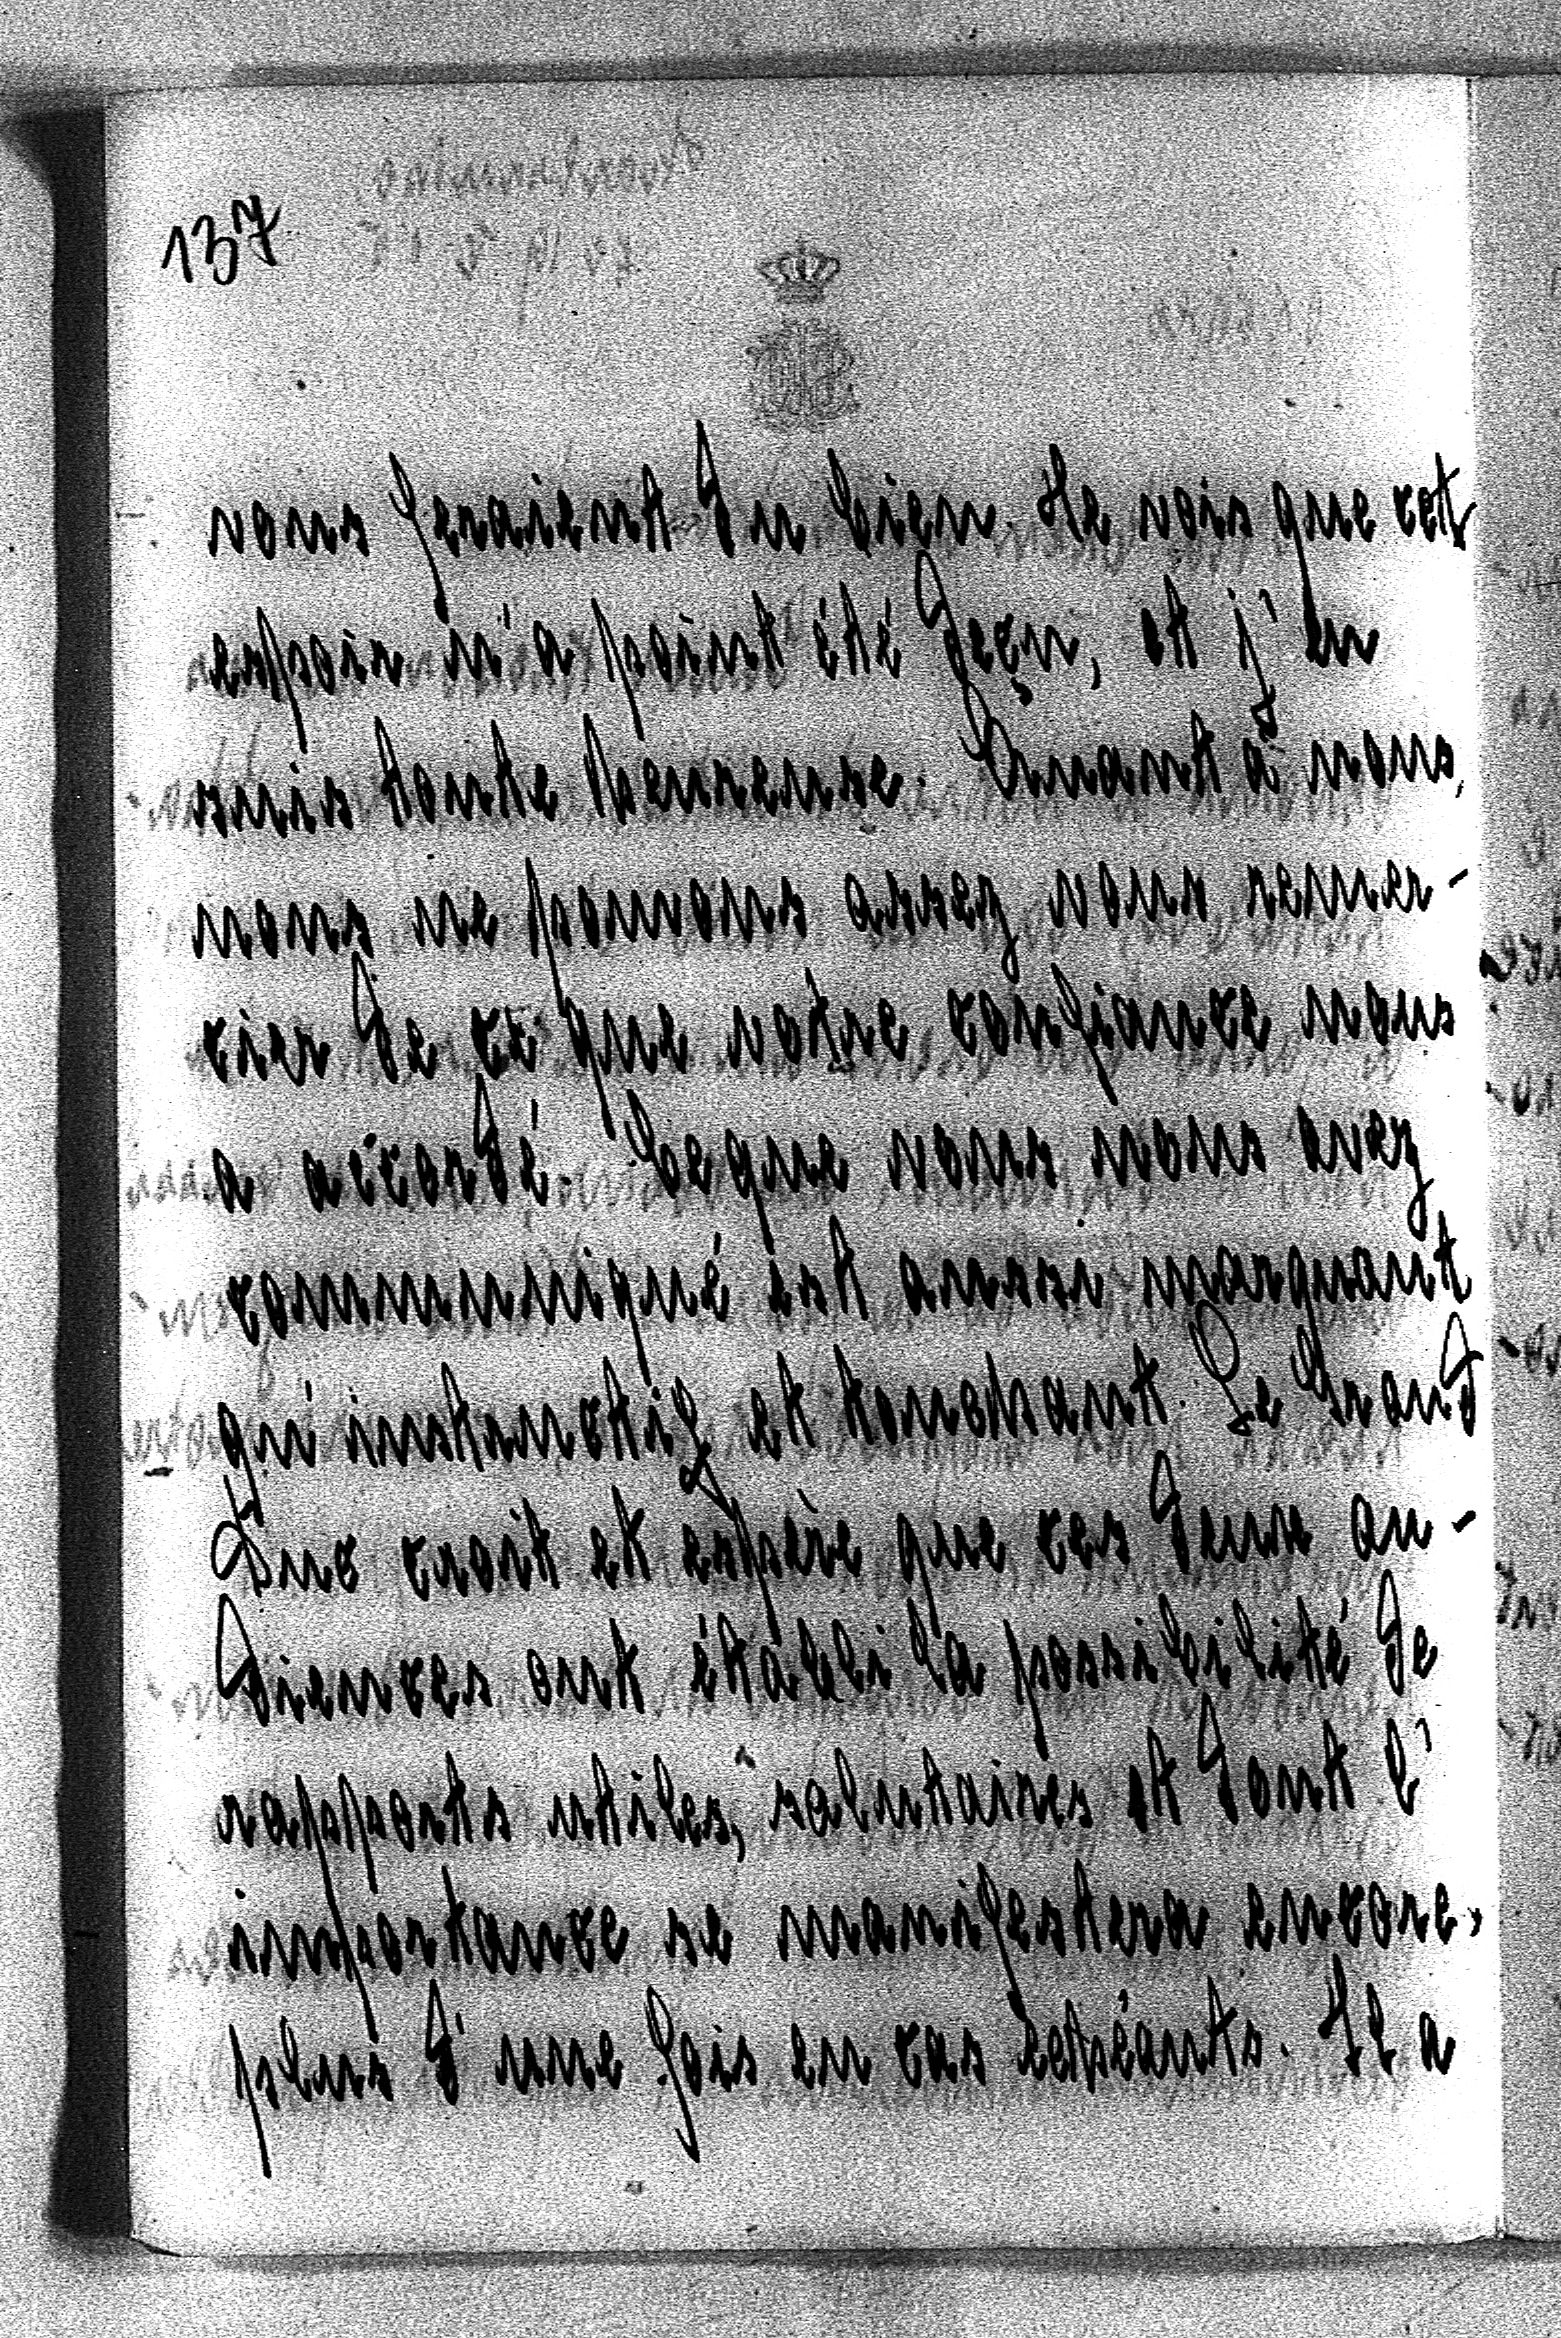 137
vous feraient du bien. Je vois que cet
espoir n'a point été déçu, et j'en
suis toute heureuse. Quant à nous,
nous ne pouvons assez vous remer-
cier de ce que votre confiance nous
a accordé. Ceque vous nous avez
communiqué est aussi marquant
qui instructif et touchant. Le Grand
Duc croit et espère que ces deux au-
diences ont établi la possibilité de
rapports utiles, salutaires et dont l'
importance se manifestera encore,
plus d'une fois en cas échéants. Il a